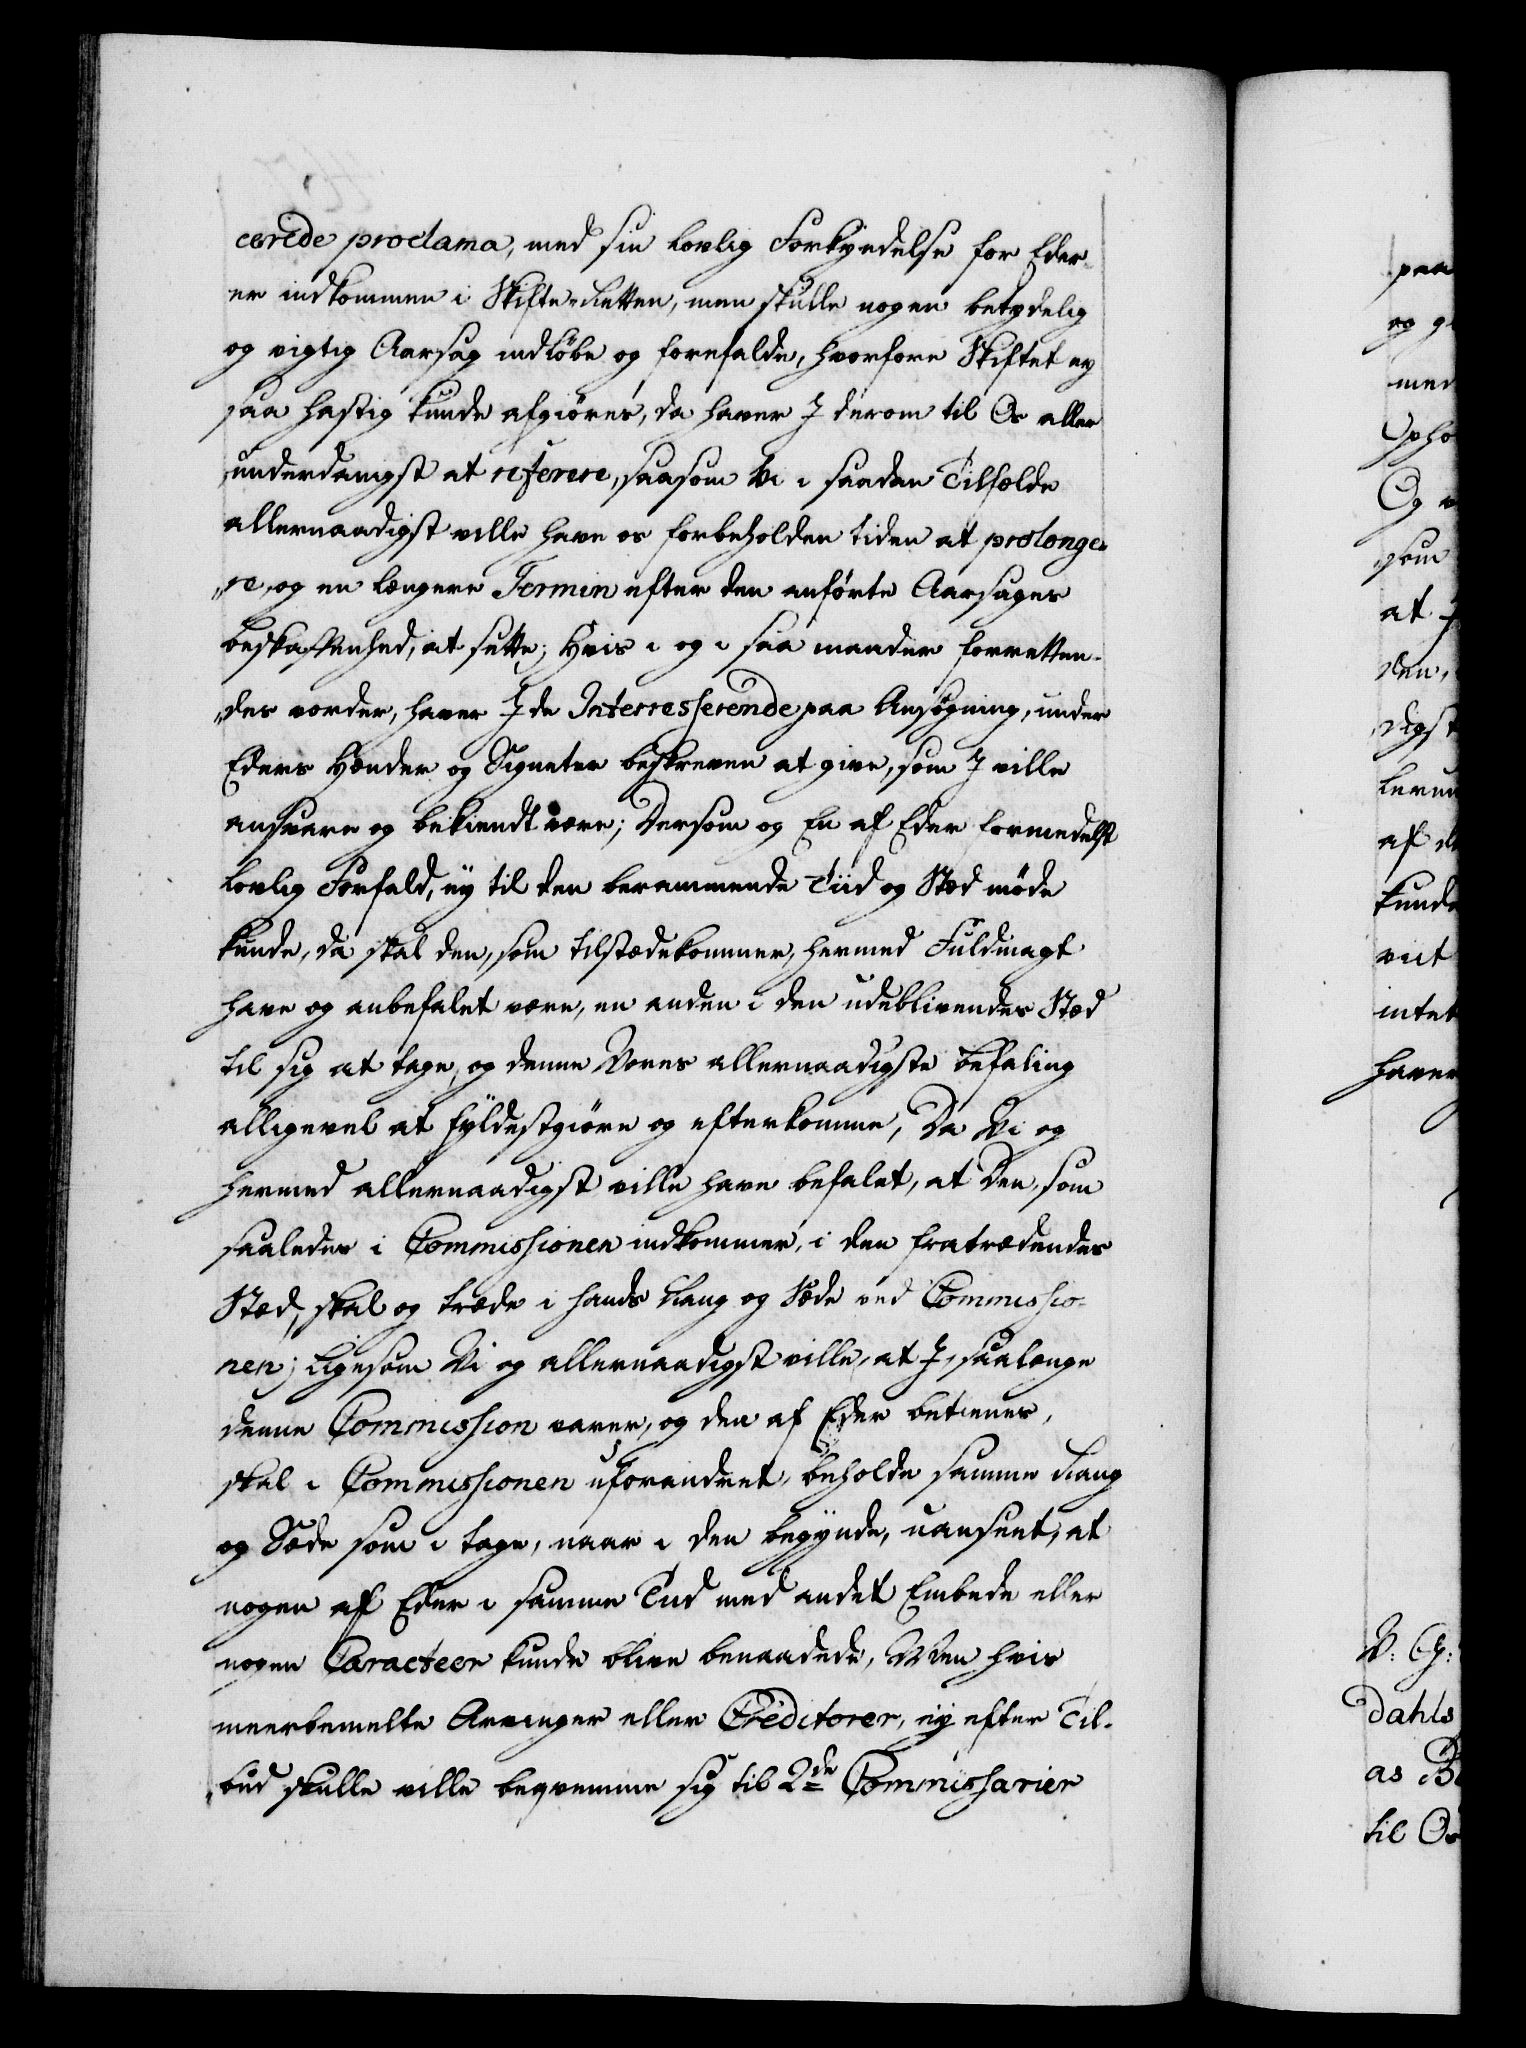 cerede proclama, med sin lovlig Forkyndelse for Eder
er indkommen i Skifte-Retten, men skulle nogen betydelig
og vigtig Aarsag indløbe og forefalde, hvorfore Skiftet ey
saa hastig kunde afgiøres, da haver I derom til Os aller
underdanigst at referere, saasom Vi i saadan Tilfælde
allernaadigst ville have os forbeholden tiden at prolonge-
re, og en længere Termin efter den anførte Aarsages
beskaffenhed, at sætte; Hvis i og i saa maader forretten-
des vorder, haver I de Interresserende paa Ansøgning, under
Eders Hænder og Signeter beskreven at give, som I ville
ansvare og bekiendt være; Dersom og En af Eder formedelst
lovlig Forfald, ey til den berammende Tiid og Stæd møde
kunde, da skal den, som tilstædekommer, hermed Fuldmagt
have og anbefalet være, en anden i den udeblivendes Stæd
til sig at tage, og denne Vores allernaadigste befaling
alligevel at fyldestgiøre og efterkomme, Da Vi og
hermed allernaadigst ville have befalet, at Den, som
saaledes i Commissionen indkommer, i den fratrædendes
Stæd, skal og træde i hands Rang og Sæde ved Commissio-
nen; Ligesom Vi og allernaadigst ville, at I, saalænge
denne Commission varer, og den af Eder betienes,
skal i Commissionen uforandret, beholde samme Rang
og Sæde som i tage, naar i den begynde, uanseet, at
nogen af Eder i samme Tiid med andet Embede eller
nogen Caracteer kunde blive benaadede, Men hvis
meerbemelte Arvinger eller Creditorer, ey efter Til-
bud skulle ville beqvemme sig til 2de Commissarier
paa
med
Og
som
at
den,
digst
af
kunde
intet
haver
V: G:
Dahls
as
til Os